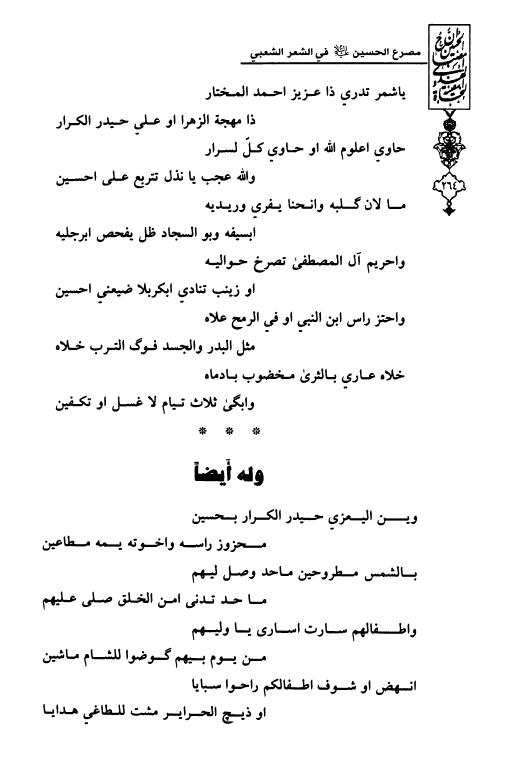 مصرع الحسين ﷺ في الشعر الشعبي
٢٦٤
ياشمر تدري ذا عزيز احمد المختار
ذا مهجة الزهرا او علي حيدر الكرار
حاوي اعلوم الله او حاوي كلّ لسرار
والله عجب يا نذل تتربع على احسين
ما لان گلبه وانحنا يفري وريديه
ابسيفه وبو السجاد ظل يفحص ابرجليه
واحريم آل المصطفىٰ تصرخ حواليه
او زينب تنادي ابكربلا ضيعني احسين
واحتز راس ابن النبي او في الرمح علاه
مثل البدر والجسد فوگ الترب خلاه
خلاه عاري بالثرىٰ مخضوب بادماه
وابگىٰ ثلاث تيام لا غسل او تكفين
* * *
وله أيضاً
وين اليعزي حيدر الكرار بحسين
محزوز راسه واخوته يمه مطاعين
بالشمس مطروحين ماحد وصل ليهم
ما حد تدنى امن الخلق صلى عليهم
واطفالهم سارت اسارى يا وليهم
من يوم بيهم گوضوا للشام ماشين
انهض او شوف اطفالكم راحوا سبايا
او ذيچ الحراير مشت للطاغي هدايا